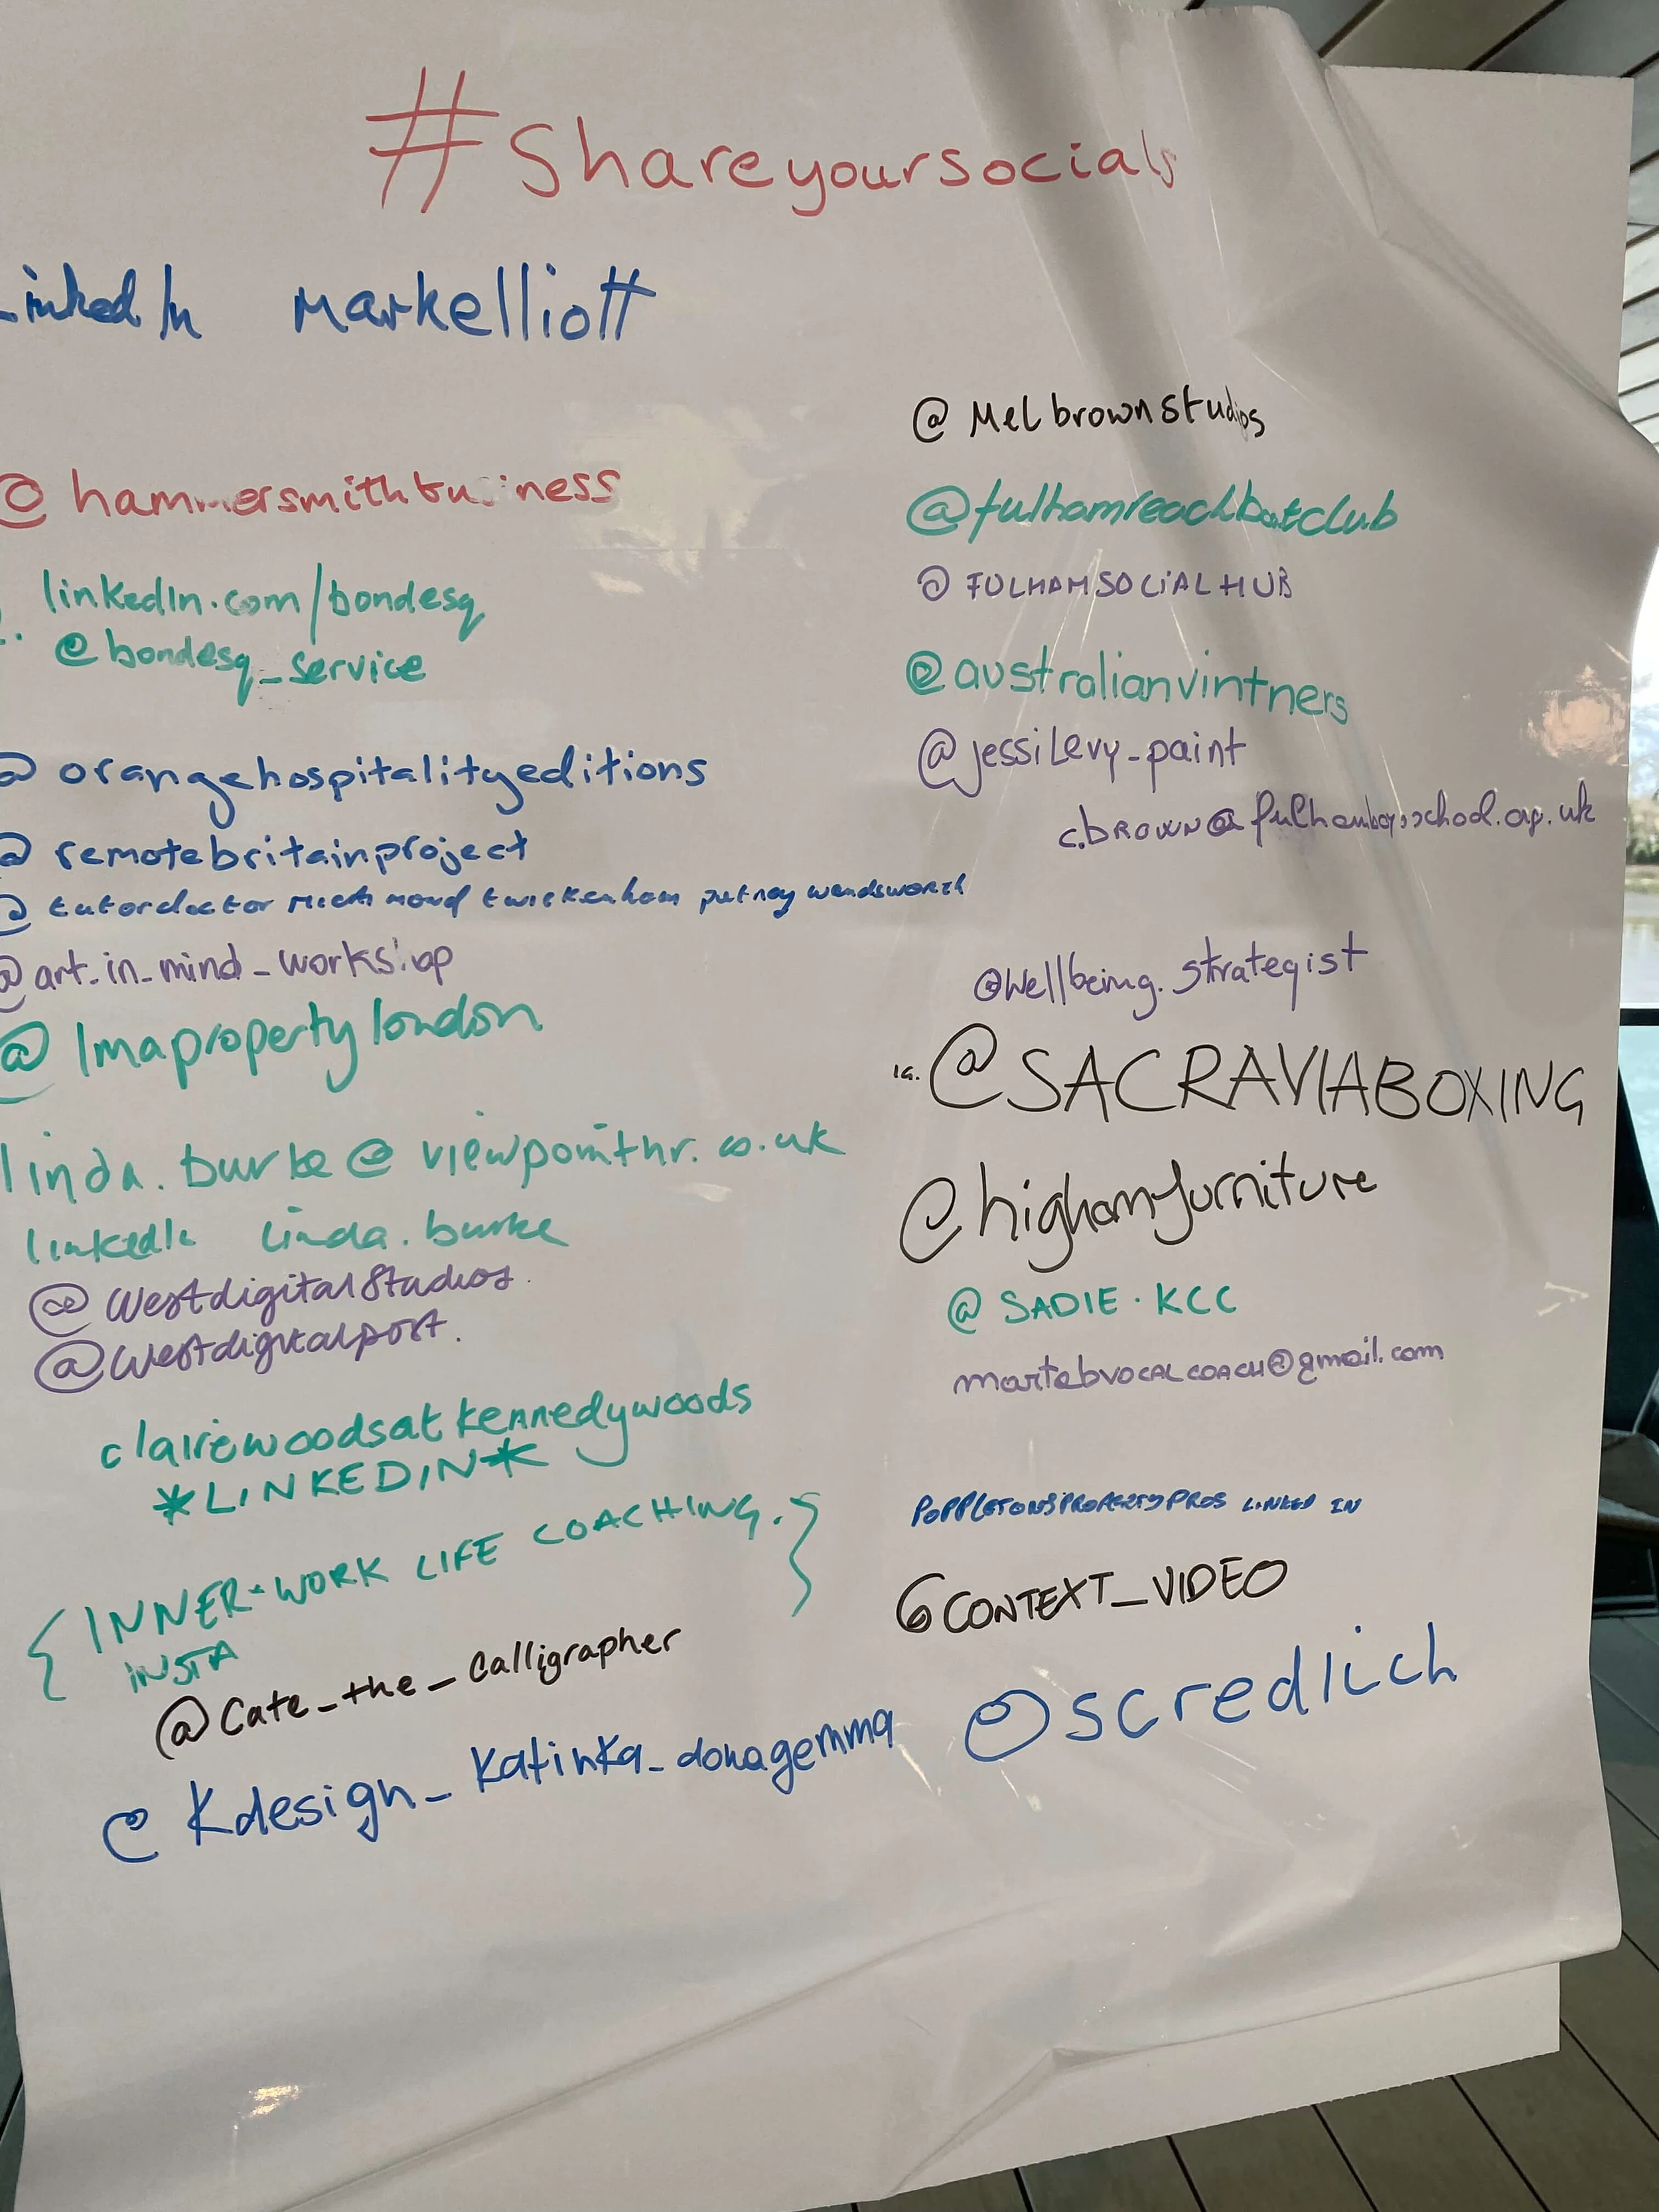 #Shareyoursocials
LinkedIn markelliott
@hammersmithbusiness
linkedIn.com/bondesq
@bondesq_service
@orangehospitalityeditions
@remotebritainproject
@tutordoctor richmond twickenham putney wandsworth
@art_in_mind_workshop
@lmapropertylondon
linda.burke@viewpointhr.co.uk
linkedIn linda.burke
@WestdigitalStudios.
@Westdigitalpost.
clairewoodsatkennedywoods
*LINKEDIN*
{INNER-WORK LIFE COACHING.}
INSTA
@Cate_the_Calligrapher
@Kdesign_Katinka_donagemma
@Melbrownstudios
@fulhamreachboatclub
@FULHAMSOCIALHUB
@australianvintners
@jessiLevy_paint
c.brown@fulhamboysschool.org.uk
@Wellbeing.strategist
IG. @SACRAVIABOXING
@highamfurniture
@SADIE.KCC
martebvocalcoach@gmail.com
POPPLETONSPROPERTYPROS LINKED IN
@CONTEXT_VIDEO
@scredlich